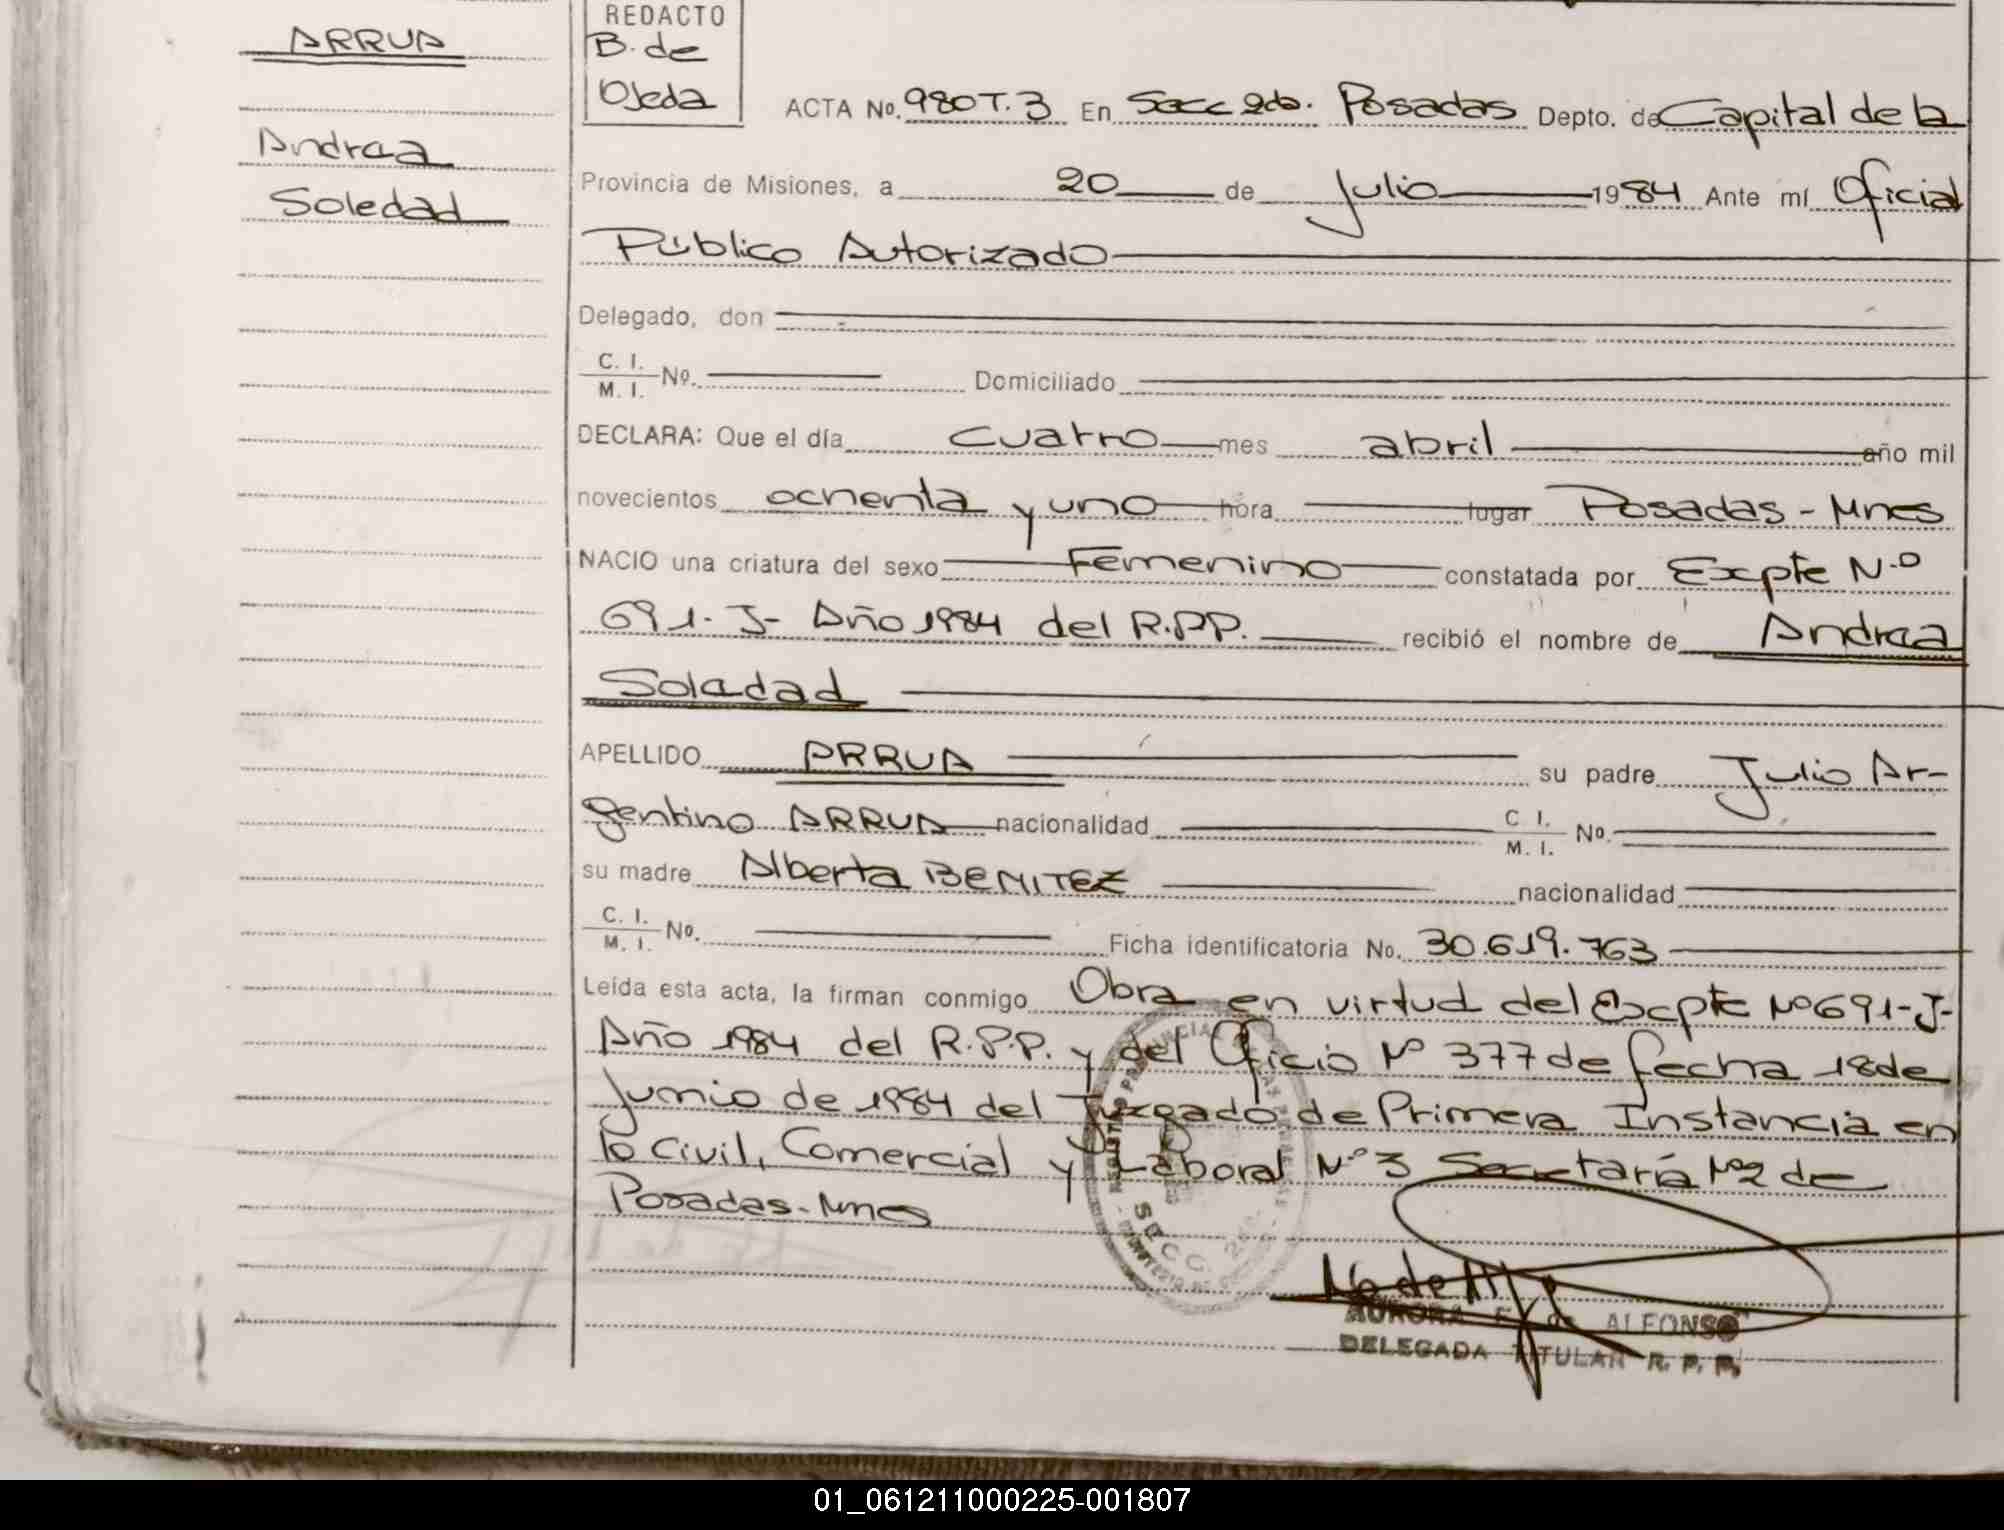 ARRUA
Andrea
Soledad
REDACTO
B. de
Ojeda
ACTA No. 980 T. 3 En Secc 2da. Posadas Depto. de Capital de la
Provincia de Misiones, a 20 de Julio 1984 Ante mí Oficial
Público Autorizado
Delegado, don
C. I.
M. I. No. Domiciliado
DECLARA: Que el día cuatro mes abril año mil
novecientos ochenta y uno hora lugar Posadas - Mnes
NACIO una criatura del sexo Femenino constatada por Expte N.º
691. J- Año 1984 del R.P.P. recibió el nombre de Andrea
Soledad
APELLIDO ARRUA su padre Julio Ar-
gentino ARRUA nacionalidad C I. M. I. No.
su madre Alberta BENITEZ nacionalidad
C. I.
M. I. No. Ficha identificatoria No. 30.619.763
Leída esta acta, la firman conmigo Obra en virtud del Expte Nº 691-J-
Año 1984 del R.P.P. y del Oficio Nº 377 de fecha 18 de
Junio de 1984 del Juzgado de Primera Instancia en
lo Civil, Comercial y Laboral Nº 3 Secretaría Nº 2 de
Posadas-Mnes
SECC. 2da.
AURORA F. de ALFONSO
DELEGADA TITULAR R. P. P.
01_061211000225-001807